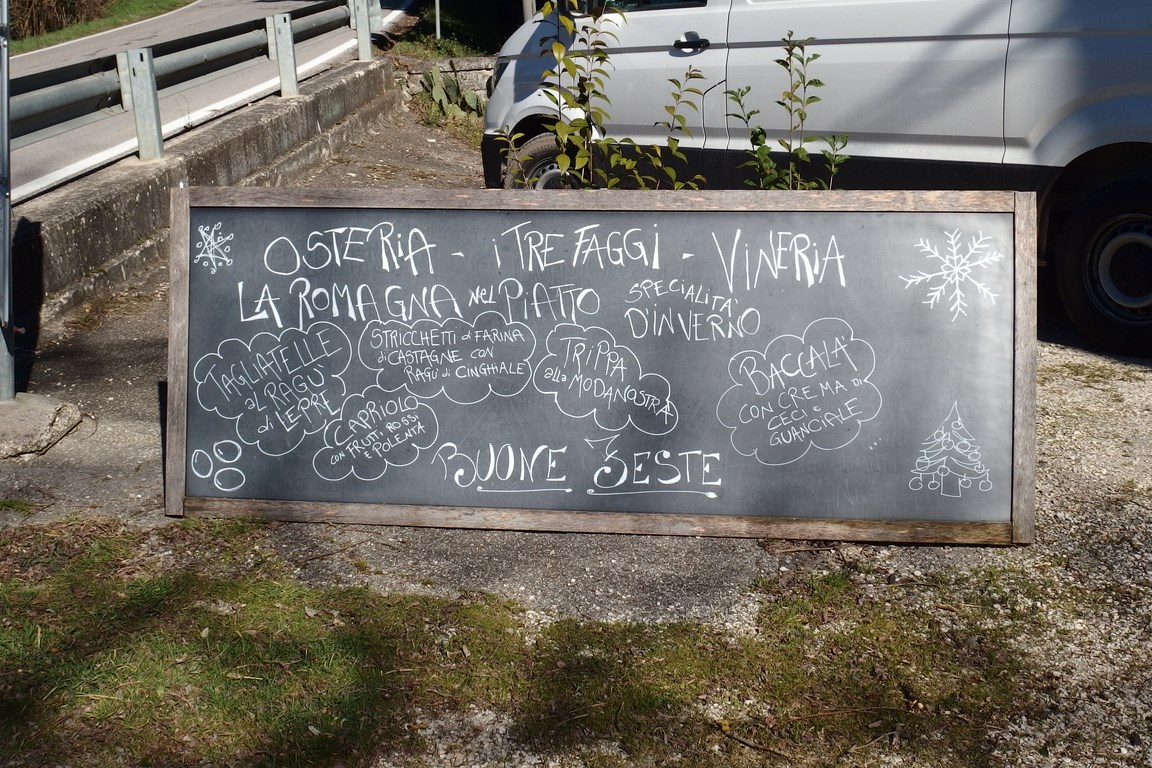 OSTERIA - i TRE FAGGI - VINERIA
LA ROMAGNA NEL PIATTO
SPECIALITÀ
D'INVERNO
TAGLIATELLE
al RAGU'
di LEPRE
STRICCHETTI di FARINA
di CASTAGNE CON
RAGU' di CINGHIALE
CAPRIOLO
CON FRUTTI ROSSI
E POLENTA
TRIPPA
alla MODANOSTRA
BACCALA'
CON CREMA DI
CECI e
GUANCIALE
...
BUONE FESTE